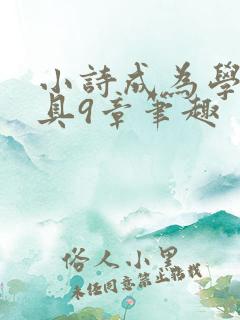 小詩成為學
具9章筆趣
俗人小星
未经同意禁止转载